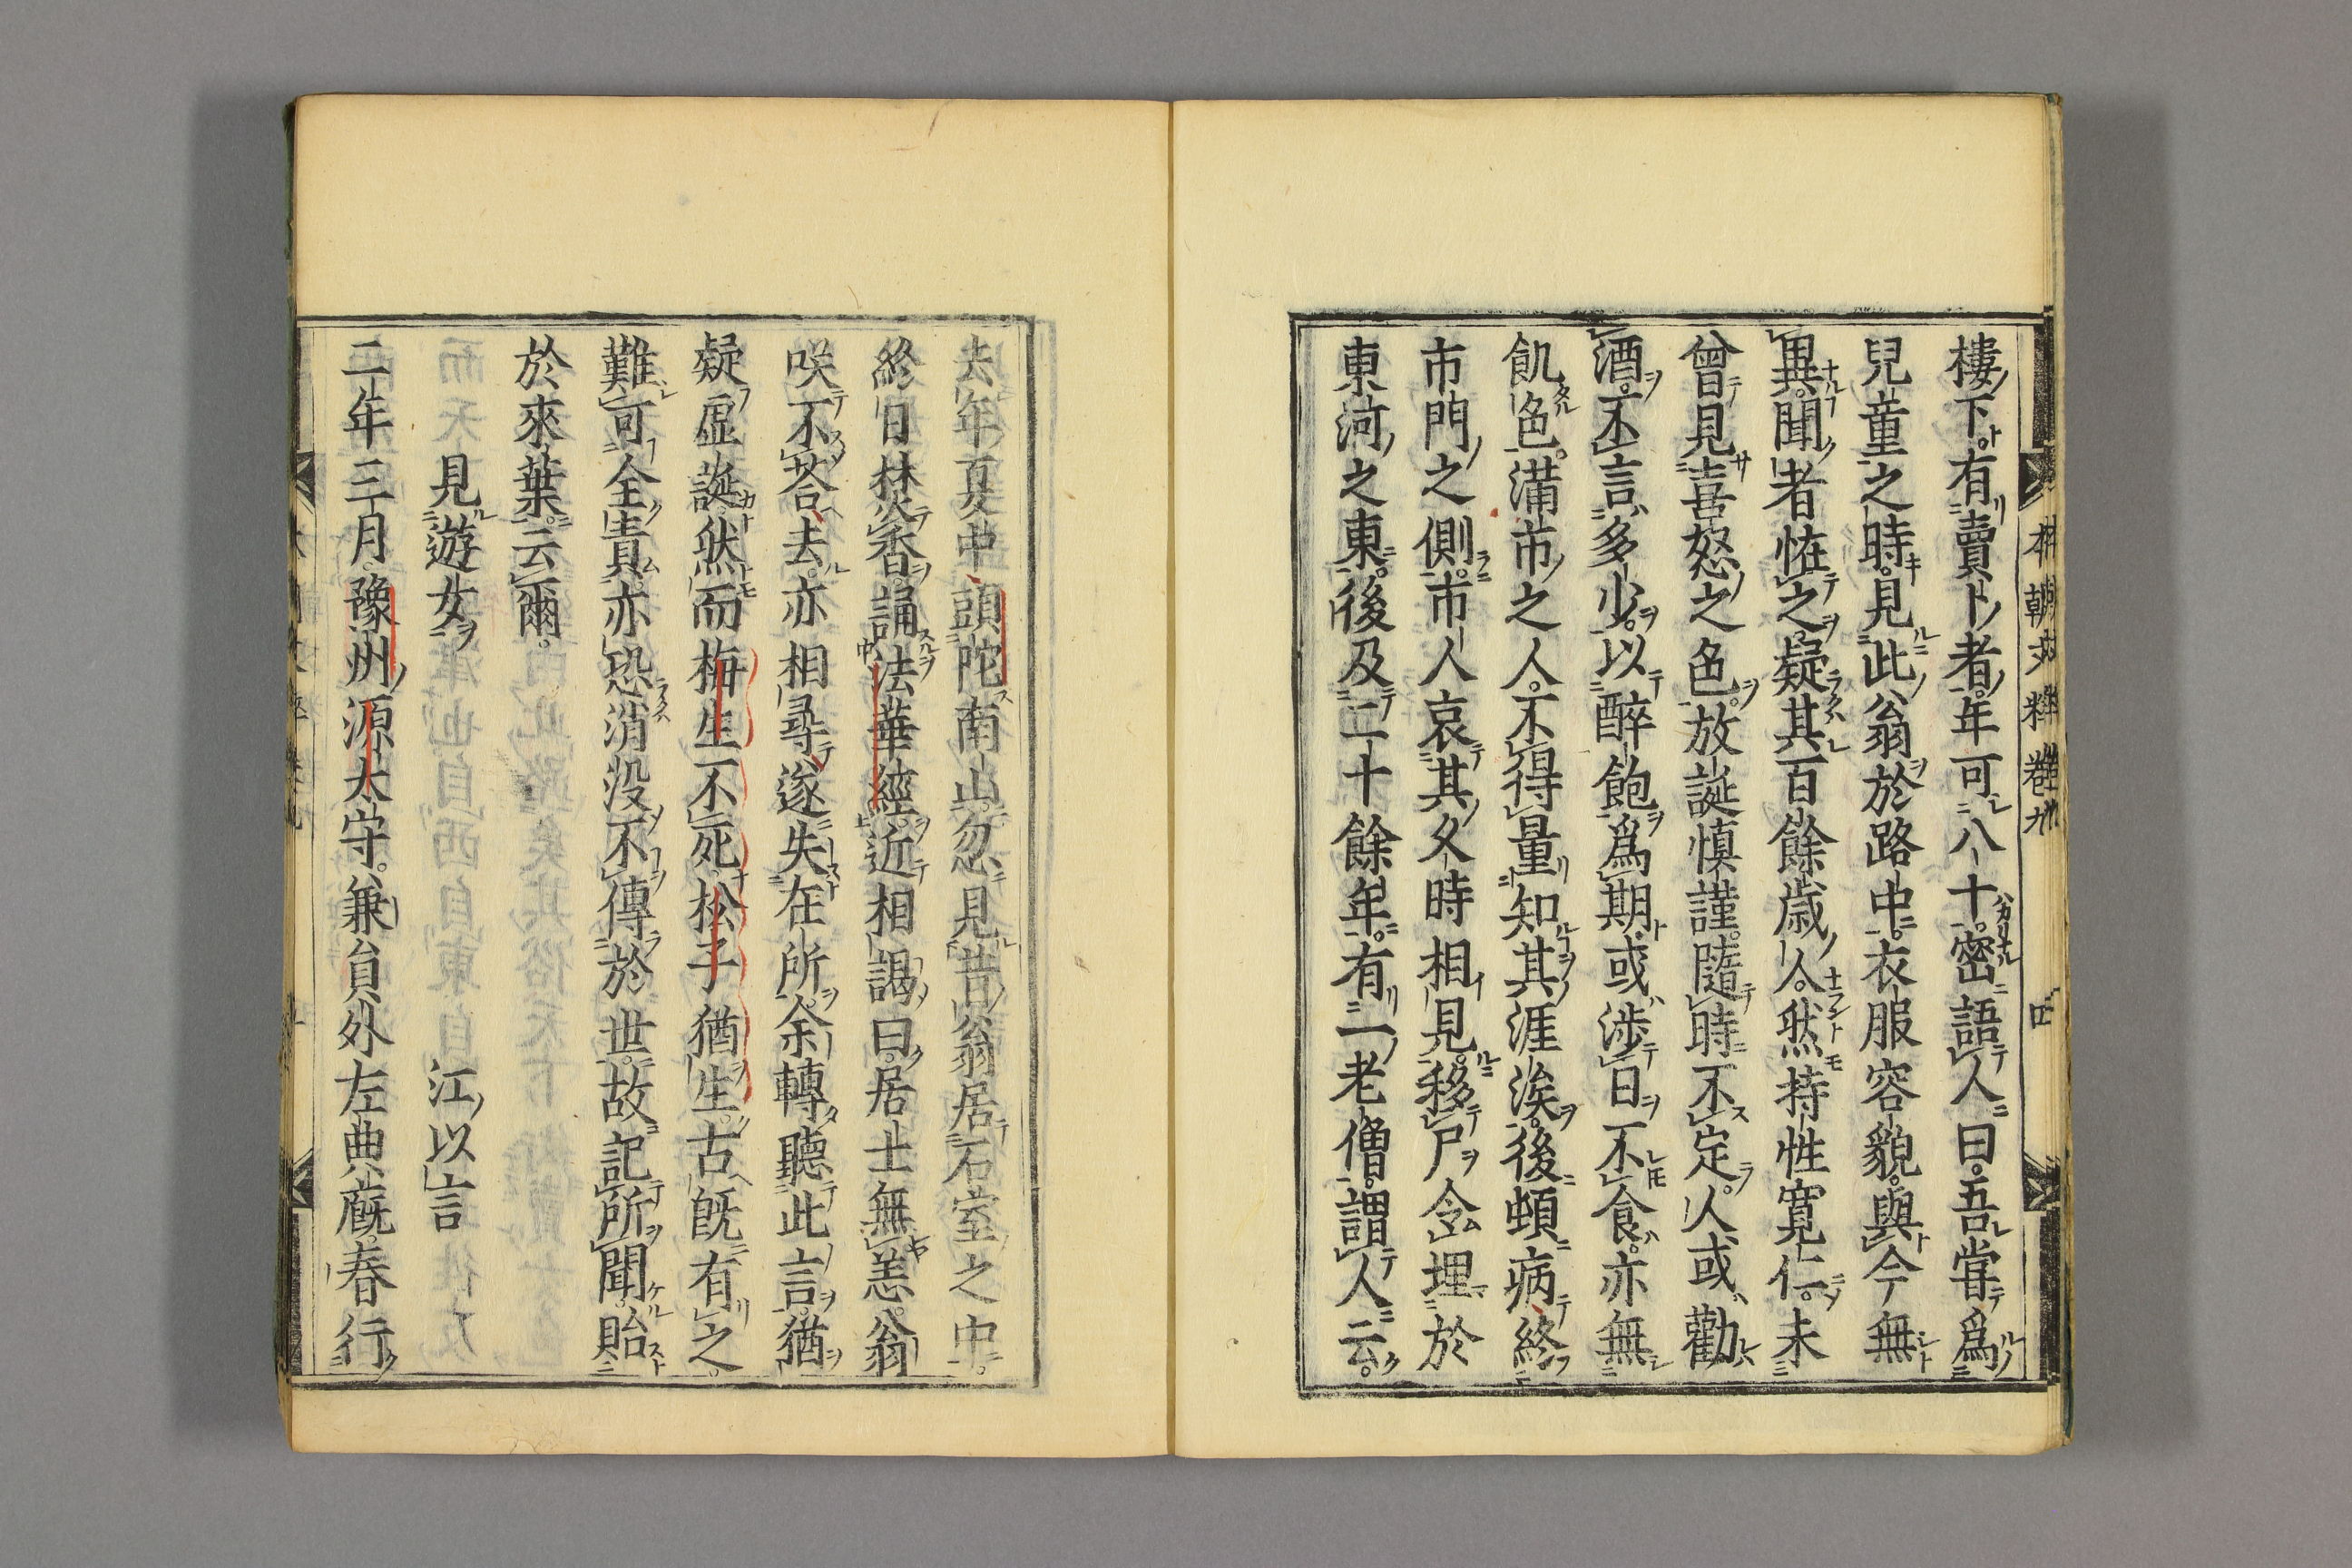 樓下有賣卜者。年可八十。密語人曰。吾嘗爲
兒童之時。見此翁於路中。衣服容貌。與今無
異。聞者恠之。疑其百餘歳人。然持性寛仁。未
曾見喜怒之色。放誕慎謹。隨時不定。人或勸
酒。不言多少。以醉飽爲期。或渉日不食。亦無
飢色。滿市之人。不得量知其涯涘。後頓病終
市門之側。市人哀其久時相見。移尸令埋於
東河之東。後及二十餘年。有一老僧。謂人云。
本朝文粹卷九
四
去年夏中。頭陀南山。忽見昔翁居石室之中。
終日焚香。誦法華經。近相謁曰。居士無恙。翁
咲不荅去。亦相尋。遂失在所。余轉聽此言。猶
疑虚誕。然而梅生不死。松子猶生。古既有之。
難可全責。亦恐消没不傳於世。故記所聞。貽
於來葉云爾。
見遊女 江以言
二年三月。豫州源太守。兼員外左典厩。春行